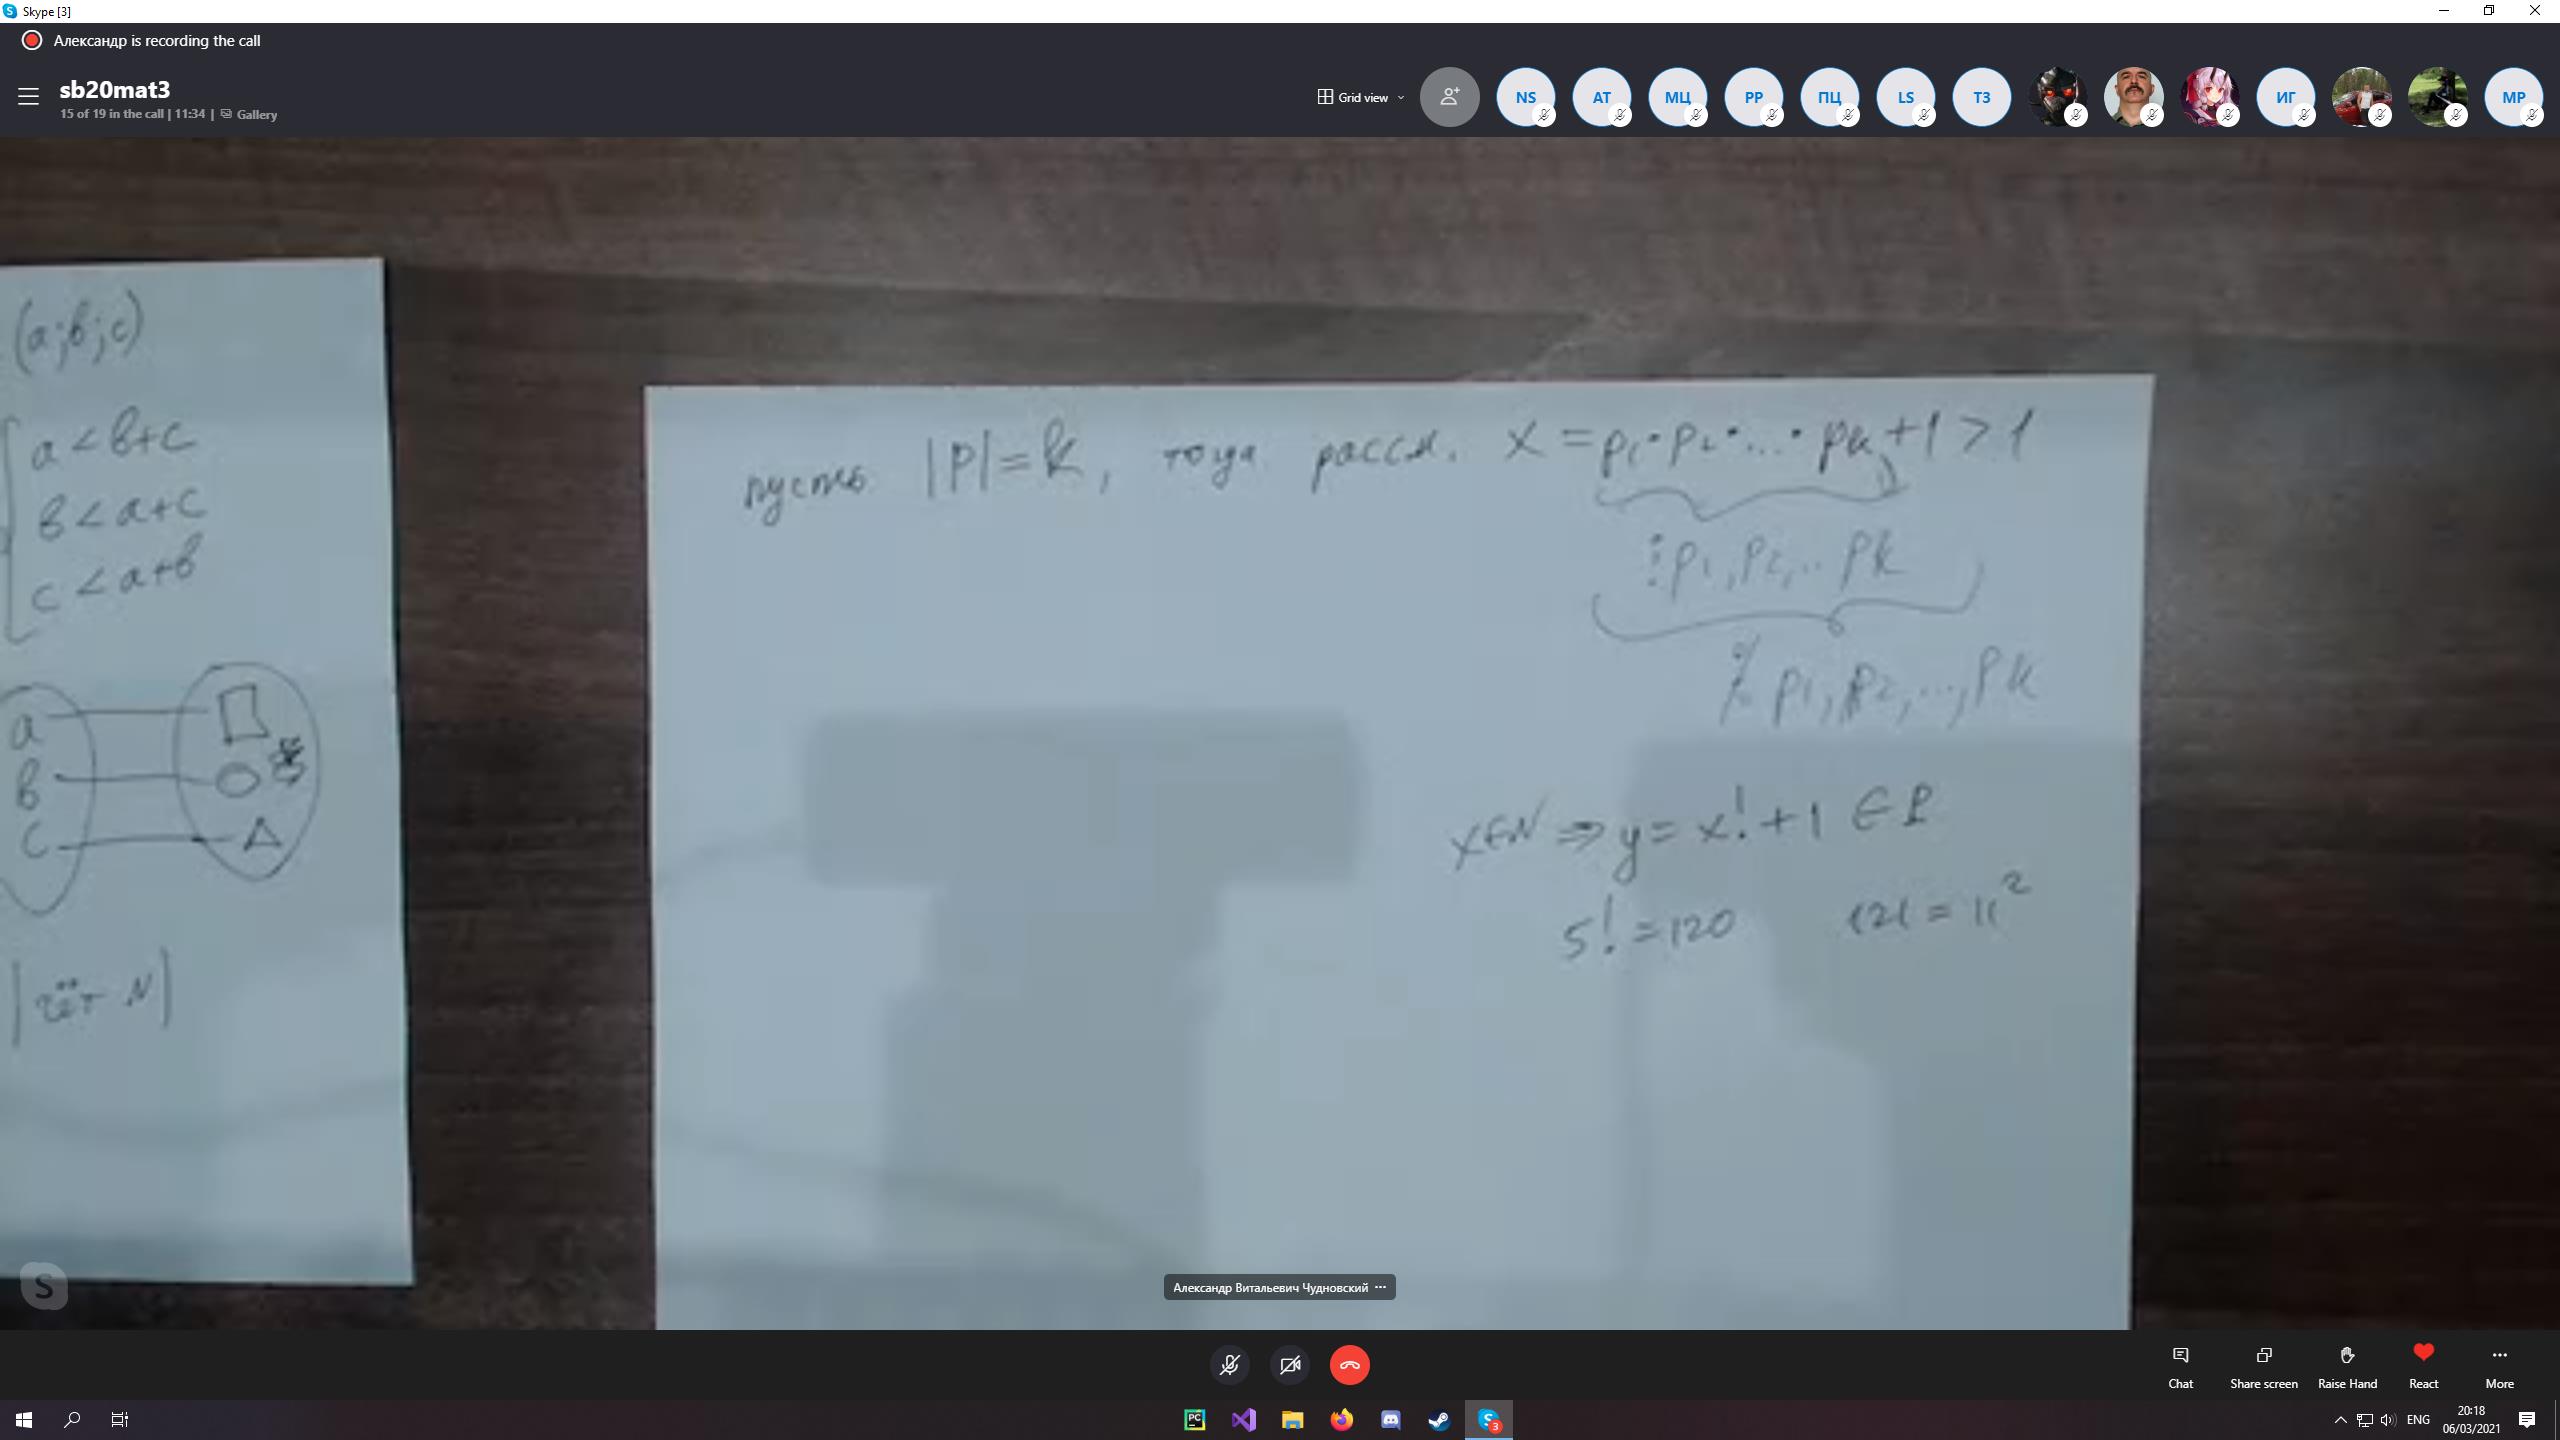 Skype [3]
Александр is recording the call
sb20mat3
15 of 19 in the call | 11:34 | Gallery
Grid view
NS AT МЦ PP ПЦ LS T3 ИГ MP
(a;b;c)
a < b+c
b < a+c
c < a+b
a
b
c
|чёт N|
пусть |P|=k, тогда рассм. x = p₁·p₂·...·pₖ+1 > 1
⋮ p₁, p₂, .. pₖ
⋮̸ p₁, p₂, ..., pₖ
x∈N ⇒ y = x! + 1 ∈ P
5! = 120 121 = 11²
Александр Витальевич Чудновский ···
S
Chat
Share screen
Raise Hand
React
More
PC
S 3
ENG
20:18
06/03/2021